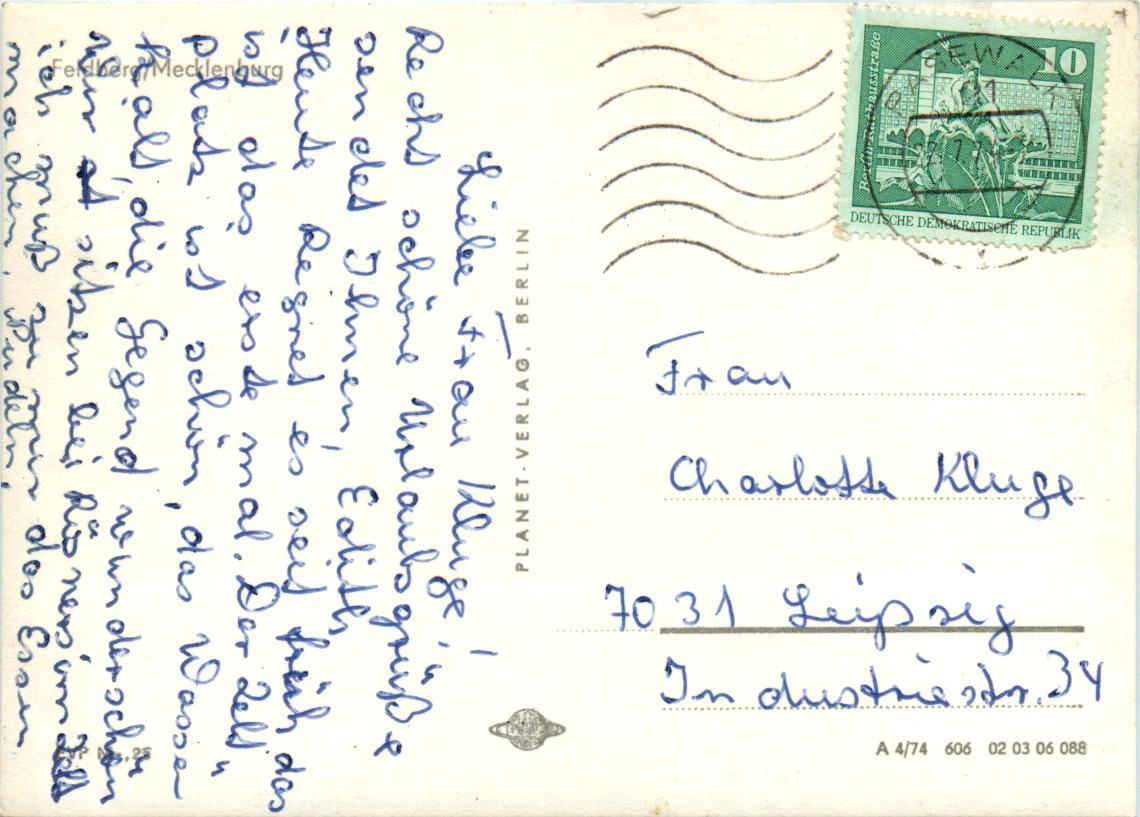 Feldberg/Mecklenburg
Liebe Frau Kluge!
Recht schöne Urlaubsgrüße
sendet Ihnen, Edith
Heute Regnet es seit früh das
ist das erste mal. Der Zelt
platz ist schön, das Wasser
kalt, die Gegend wunderschön
Wir sitzen bei Rösners im Zelt
ich muß zu mir das Essen
machen, Nudeln,
PLANET-VERLAG, BERLIN
10
DEUTSCHE DEMOKRATISCHE REPUBLIK
PASEWALK
Frau
Charlotte Kluge
7031 Leipzig
Industriestr. 34
A 4/74 606 02 03 06 088